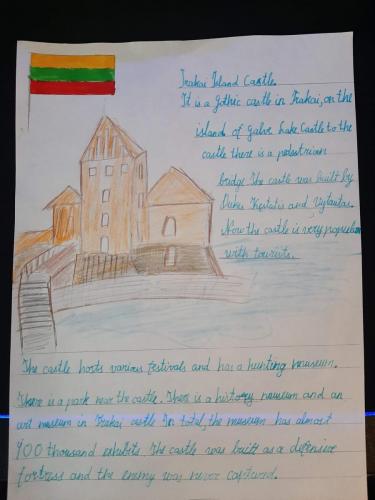 Trakai Island Castle.
It is a gothic castle in Trakai, on the
island of Galve Lake Castle to the
castle there is a pedestrian
bridge The castle was built by
Dukes Kęstutis and Vytautas.
Now the castle is very populear
with tourists.
The castle hosts various festivals and has a hunting museum.
There is a park near the castle. There is a history museum and an
art museum in Trakai castle In total, the museum has almost
400 thousand exhibits The castle was built as a defensive
fortress and the enemy was never captured.